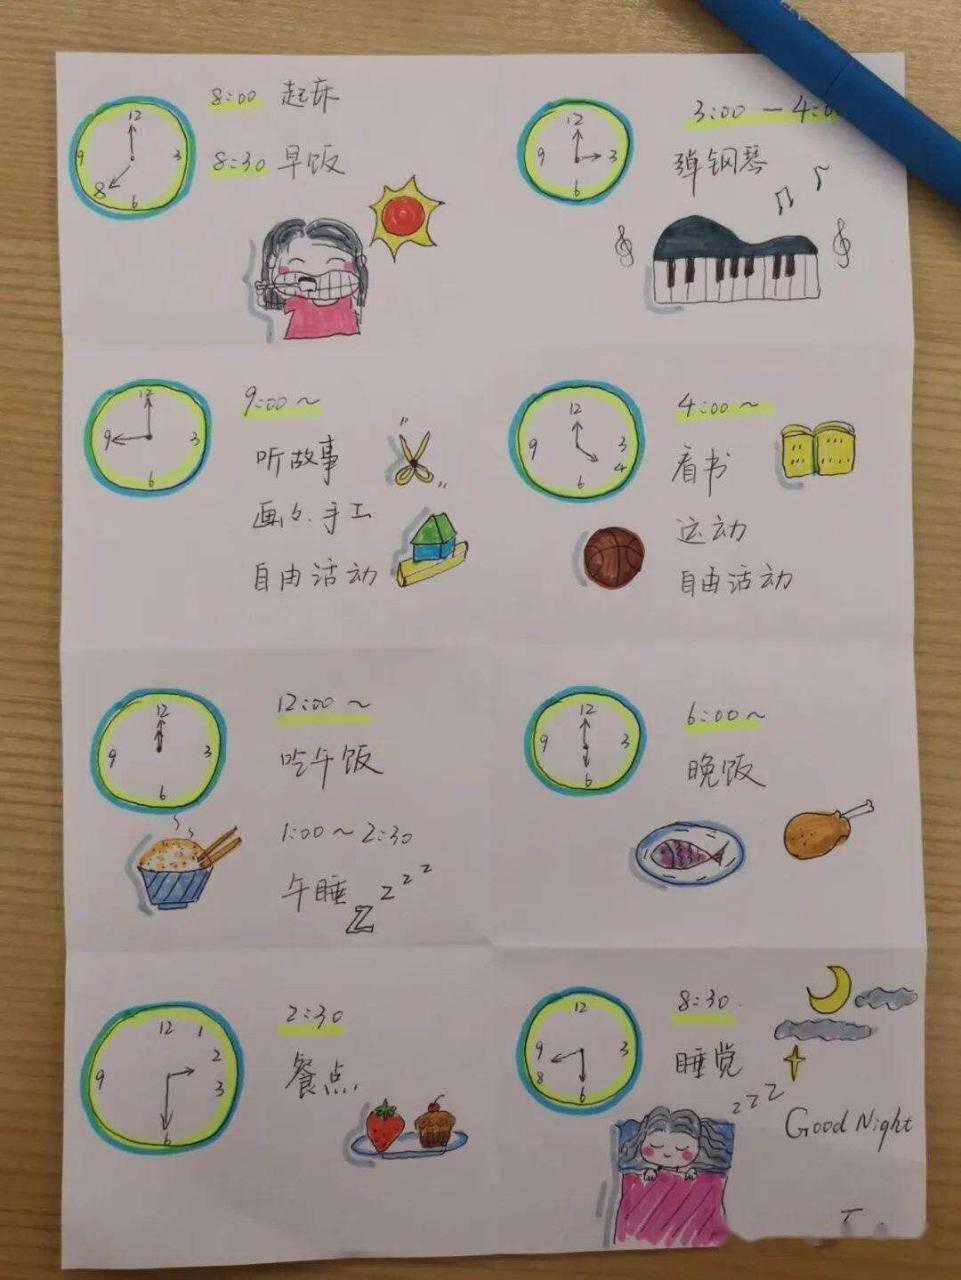 12
9
3
8
6
8:00 起床
8:30 早饭
12
9
3
6
3:00 — 4:0
弹钢琴
12
9
3
6
9:00 ~
听故事
画画、手工
自由活动
12
9
3
4
6
4:00 ~
看书
运动
自由活动
12
9
3
6
12:00 ~
吃午饭
1:00 ~ 2:30
午睡 Z z z z
12
9
3
6
6:00 ~
晚饭
12
1
2
9
3
6
2:30
餐点
12
9
3
8
6
8:30
睡觉
z z z
Good Night